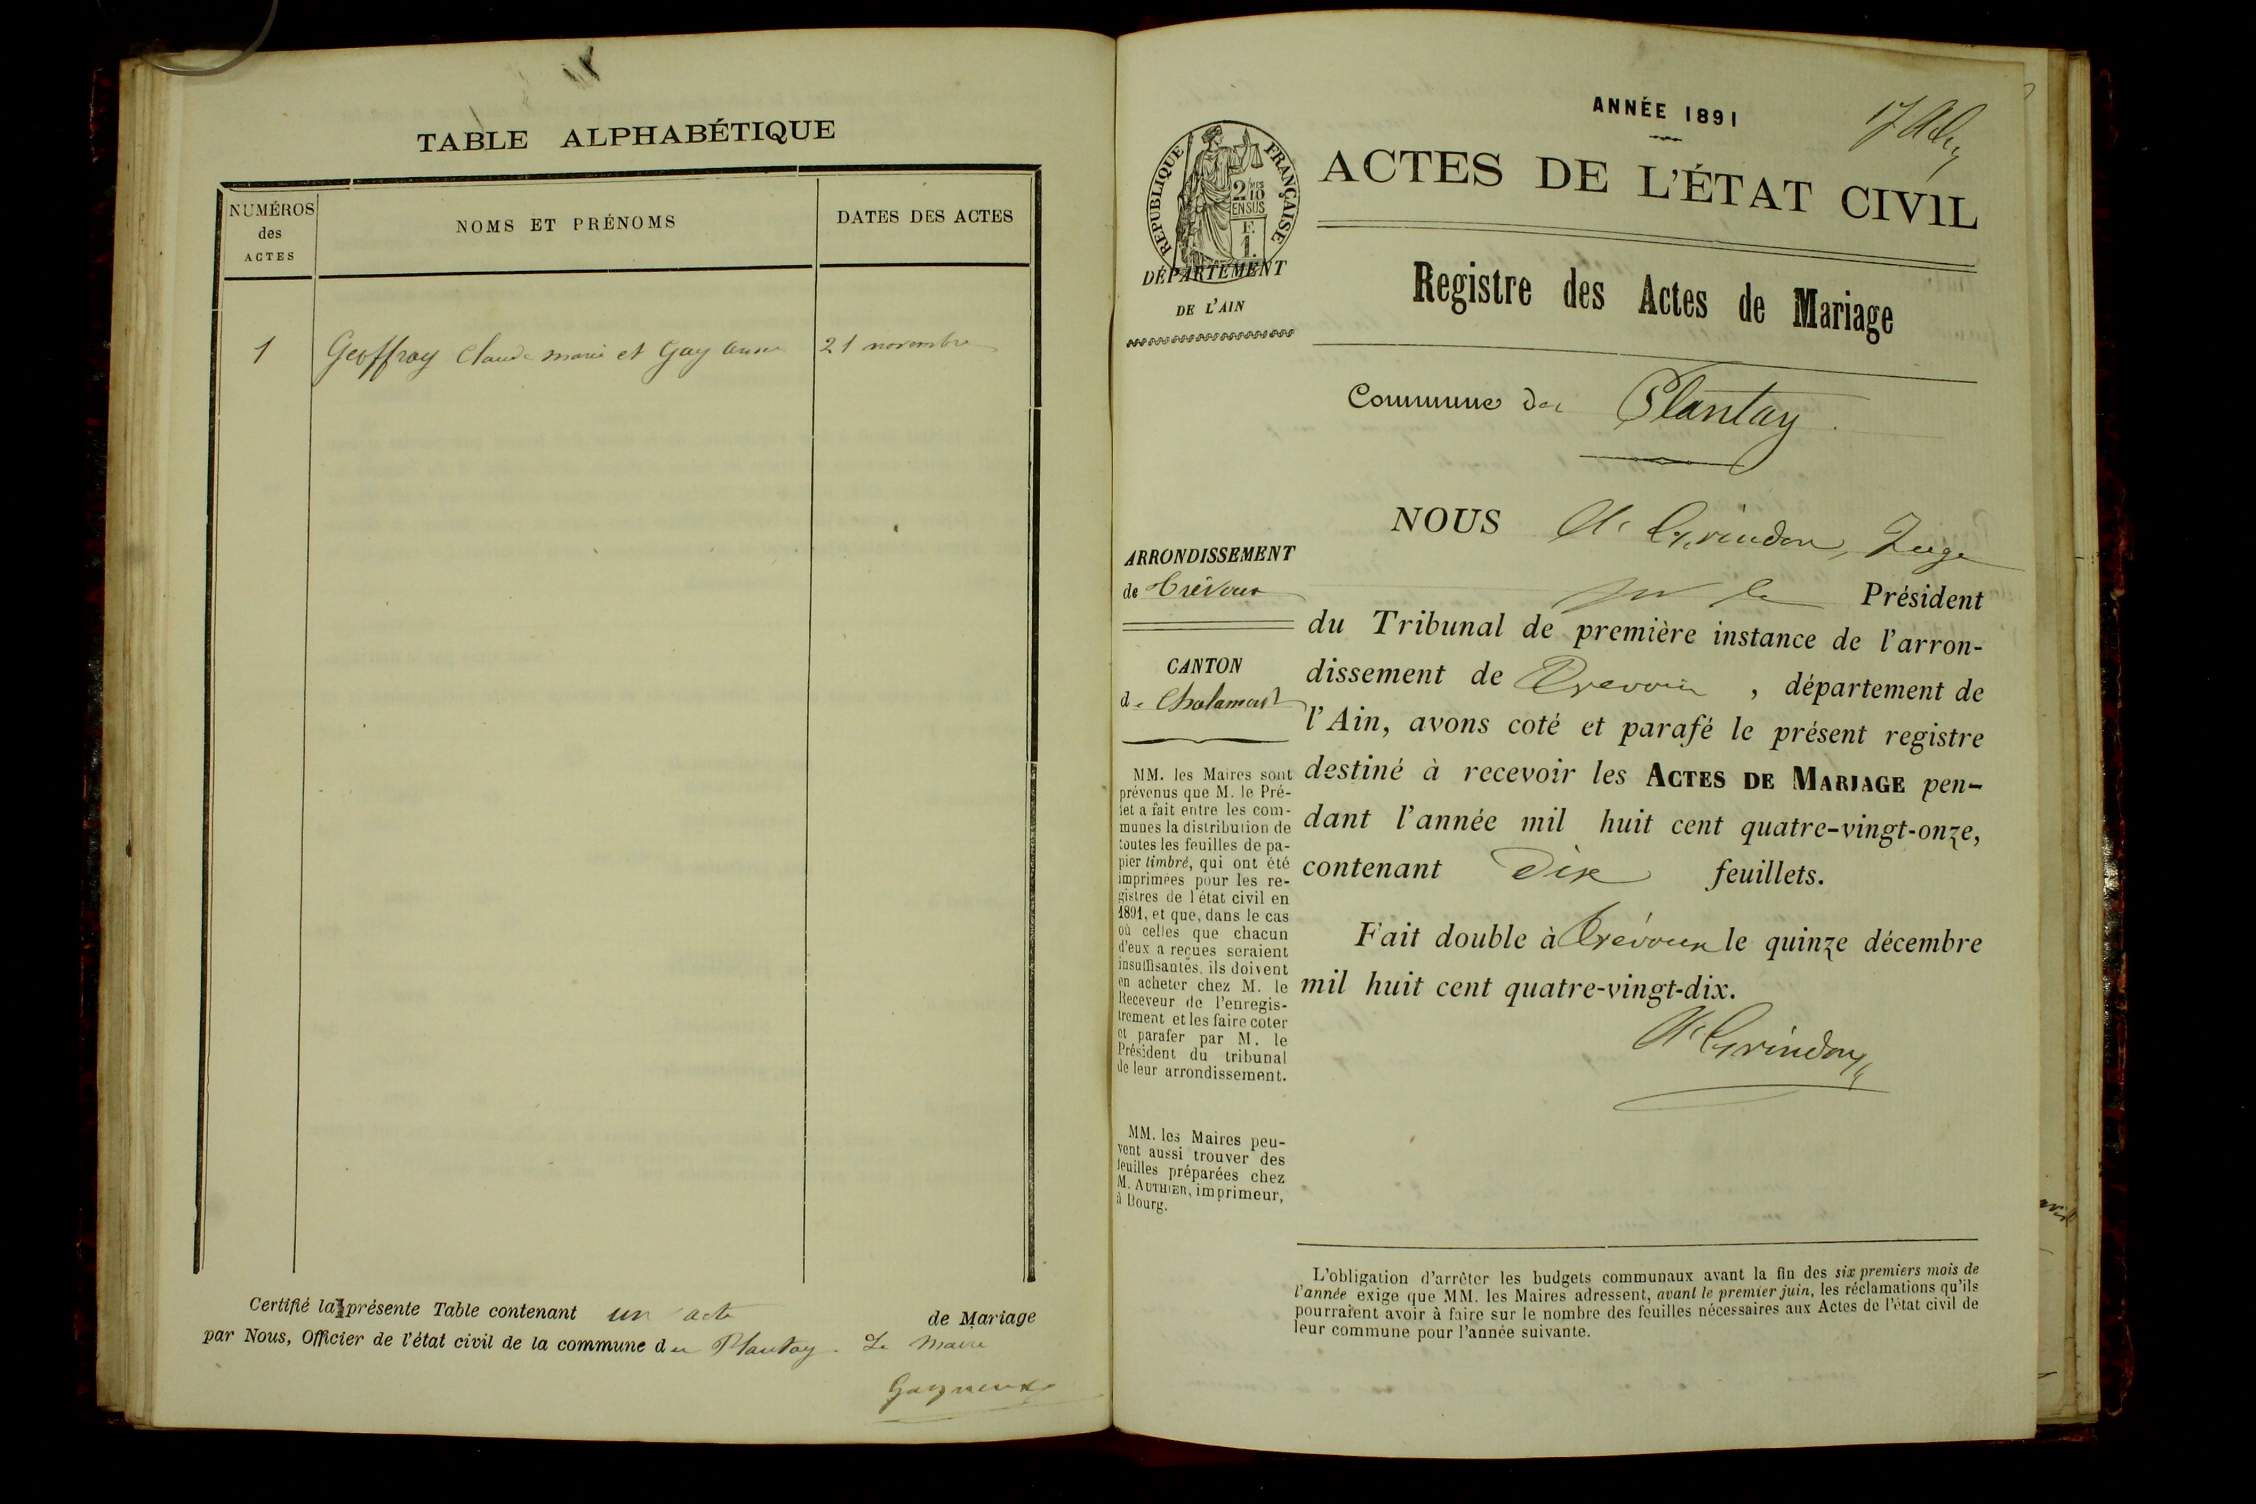 TABLE ALPHABÉTIQUE
NUMÉROS
des
ACTES
NOMS ET PRÉNOMS
DATES DES ACTES
1 Geoffray Claude marie et Gay anne 21 novembre
Certifié la présente Table contenant un acte de Mariage
par Nous, Officier de l'état civil de la commune du Plantay. Le Maire
ANNÉE 1891
ACTES DE L'ÉTAT CIVIL
RÉPUBLIQUE FRANÇAISE
2/10MES
EN SUS
F.
1.
DÉPARTEMENT
DE L'AIN
Registre des Actes de Mariage
Commune du Plantay.
NOUS Grindon, Juge
pr le Président
du Tribunal de première instance de l'arron-
dissement de Trévoux, département de
l'Ain, avons coté et parafé le présent registre
destiné à recevoir les ACTES DE MARIAGE pen-
dant l'année mil huit cent quatre-vingt-onze,
contenant Dix feuillets.
Fait double à Trévoux le quinze décembre
mil huit cent quatre-vingt-dix.
Grindon
ARRONDISSEMENT
de Trévoux
CANTON
de Chalamont
MM. les Maires sont
prévenus que M. le Pré-
fet a fait entre les com-
munes la distribution de
toutes les feuilles de pa-
pier timbré, qui ont été
imprimées pour les re-
gistres de l'état civil en
1891, et que, dans le cas
où celles que chacun
d'eux a reçues seraient
insuffisantes, ils doivent
en acheter chez M. le
Receveur de l'enregis-
trement et les faire coter
et parafer par M. le
Président du tribunal
de leur arrondissement.
MM. les Maires peu-
vent aussi trouver des
feuilles préparées chez
M. AUTHIER, imprimeur,
à Bourg.
L'obligation d'arrêter les budgets communaux avant la fin des six premiers mois de
l'année exige que MM. les Maires adressent, avant le premier juin, les réclamations qu'ils
pourraient avoir à faire sur le nombre des feuilles nécessaires aux Actes de l'état civil de
leur commune pour l'année suivante.